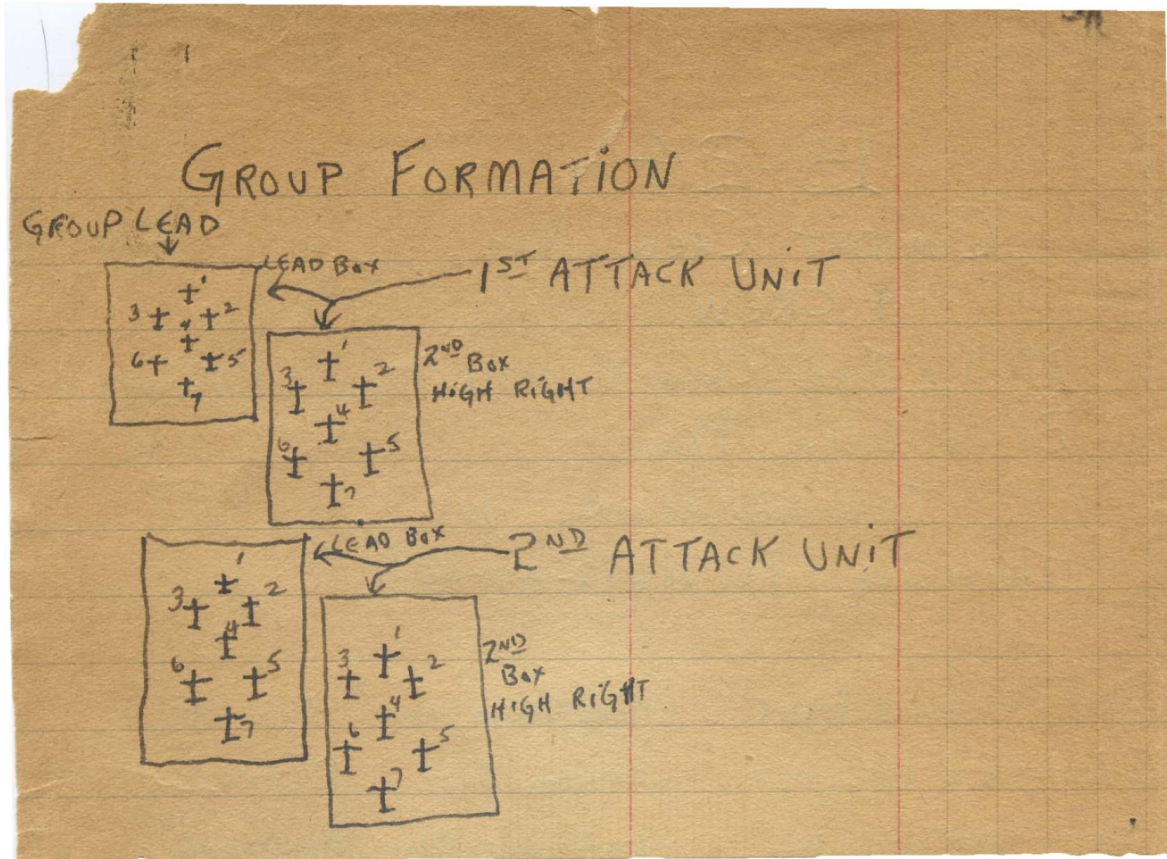 GROUP FORMATION
GROUP LEAD
LEAD BOX
1ST ATTACK UNIT
1
3 2
4
6 5
7
2ND
BOX
HIGH RIGHT
1
3 2
4
6 5
7
LEAD BOX
2ND ATTACK UNIT
1
3 2
4
6 5
7
2ND
BOX
HIGH RIGHT
1
3 2
4
6 5
7